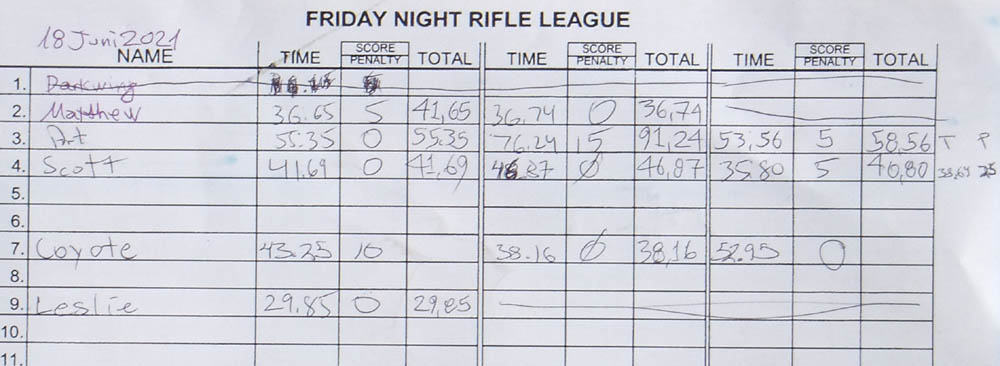 FRIDAY NIGHT RIFLE LEAGUE
18 Juni 2021
NAME TIME SCORE PENALTY TOTAL TIME SCORE PENALTY TOTAL TIME SCORE PENALTY TOTAL
1. Darkwing
2. Matthew 36.65 5 41,65 36,74 0 36,74
3. Art 55.35 0 55.35 76.24 15 91,24 53,56 5 58,56 T P
4. Scott 41.69 0 41,69 46.87 0 46,87 35.80 5 40,80
5.
6.
7. Coyote 43.25 10 38.16 0 38,16 52.95 0
8.
9. Leslie 29.85 0 29,85
10.
11.